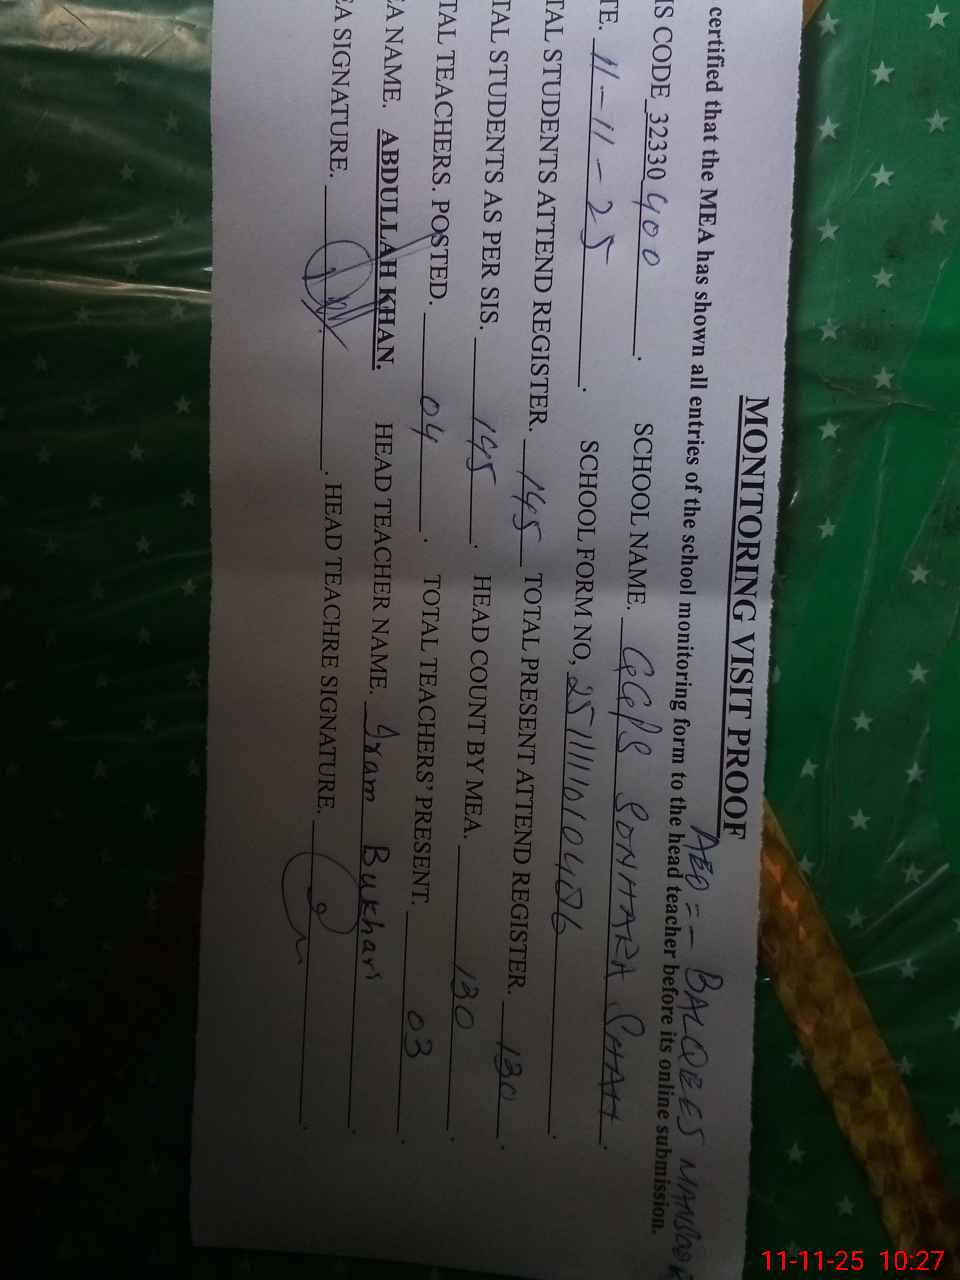 MONITORING VISIT PROOF
AEO -- BALQEES MANSOOR
certified that the MEA has shown all entries of the school monitoring form to the head teacher before its online submission.
IS CODE 32330400. SCHOOL NAME. GGPS SONHARA SHAH.
TE. 11-11-25. SCHOOL FORM NO, 25111101040406.
TAL STUDENTS ATTEND REGISTER. 145 TOTAL PRESENT ATTEND REGISTER. 130.
TAL STUDENTS AS PER SIS. 145. HEAD COUNT BY MEA. 130.
TAL TEACHERS. POSTED. 04. TOTAL TEACHERS' PRESENT. 03.
EA NAME. ABDULLAH KHAN. HEAD TEACHER NAME. Iram Bukhari.
EA SIGNATURE. . HEAD TEACHRE SIGNATURE. .
11-11-25 10:27